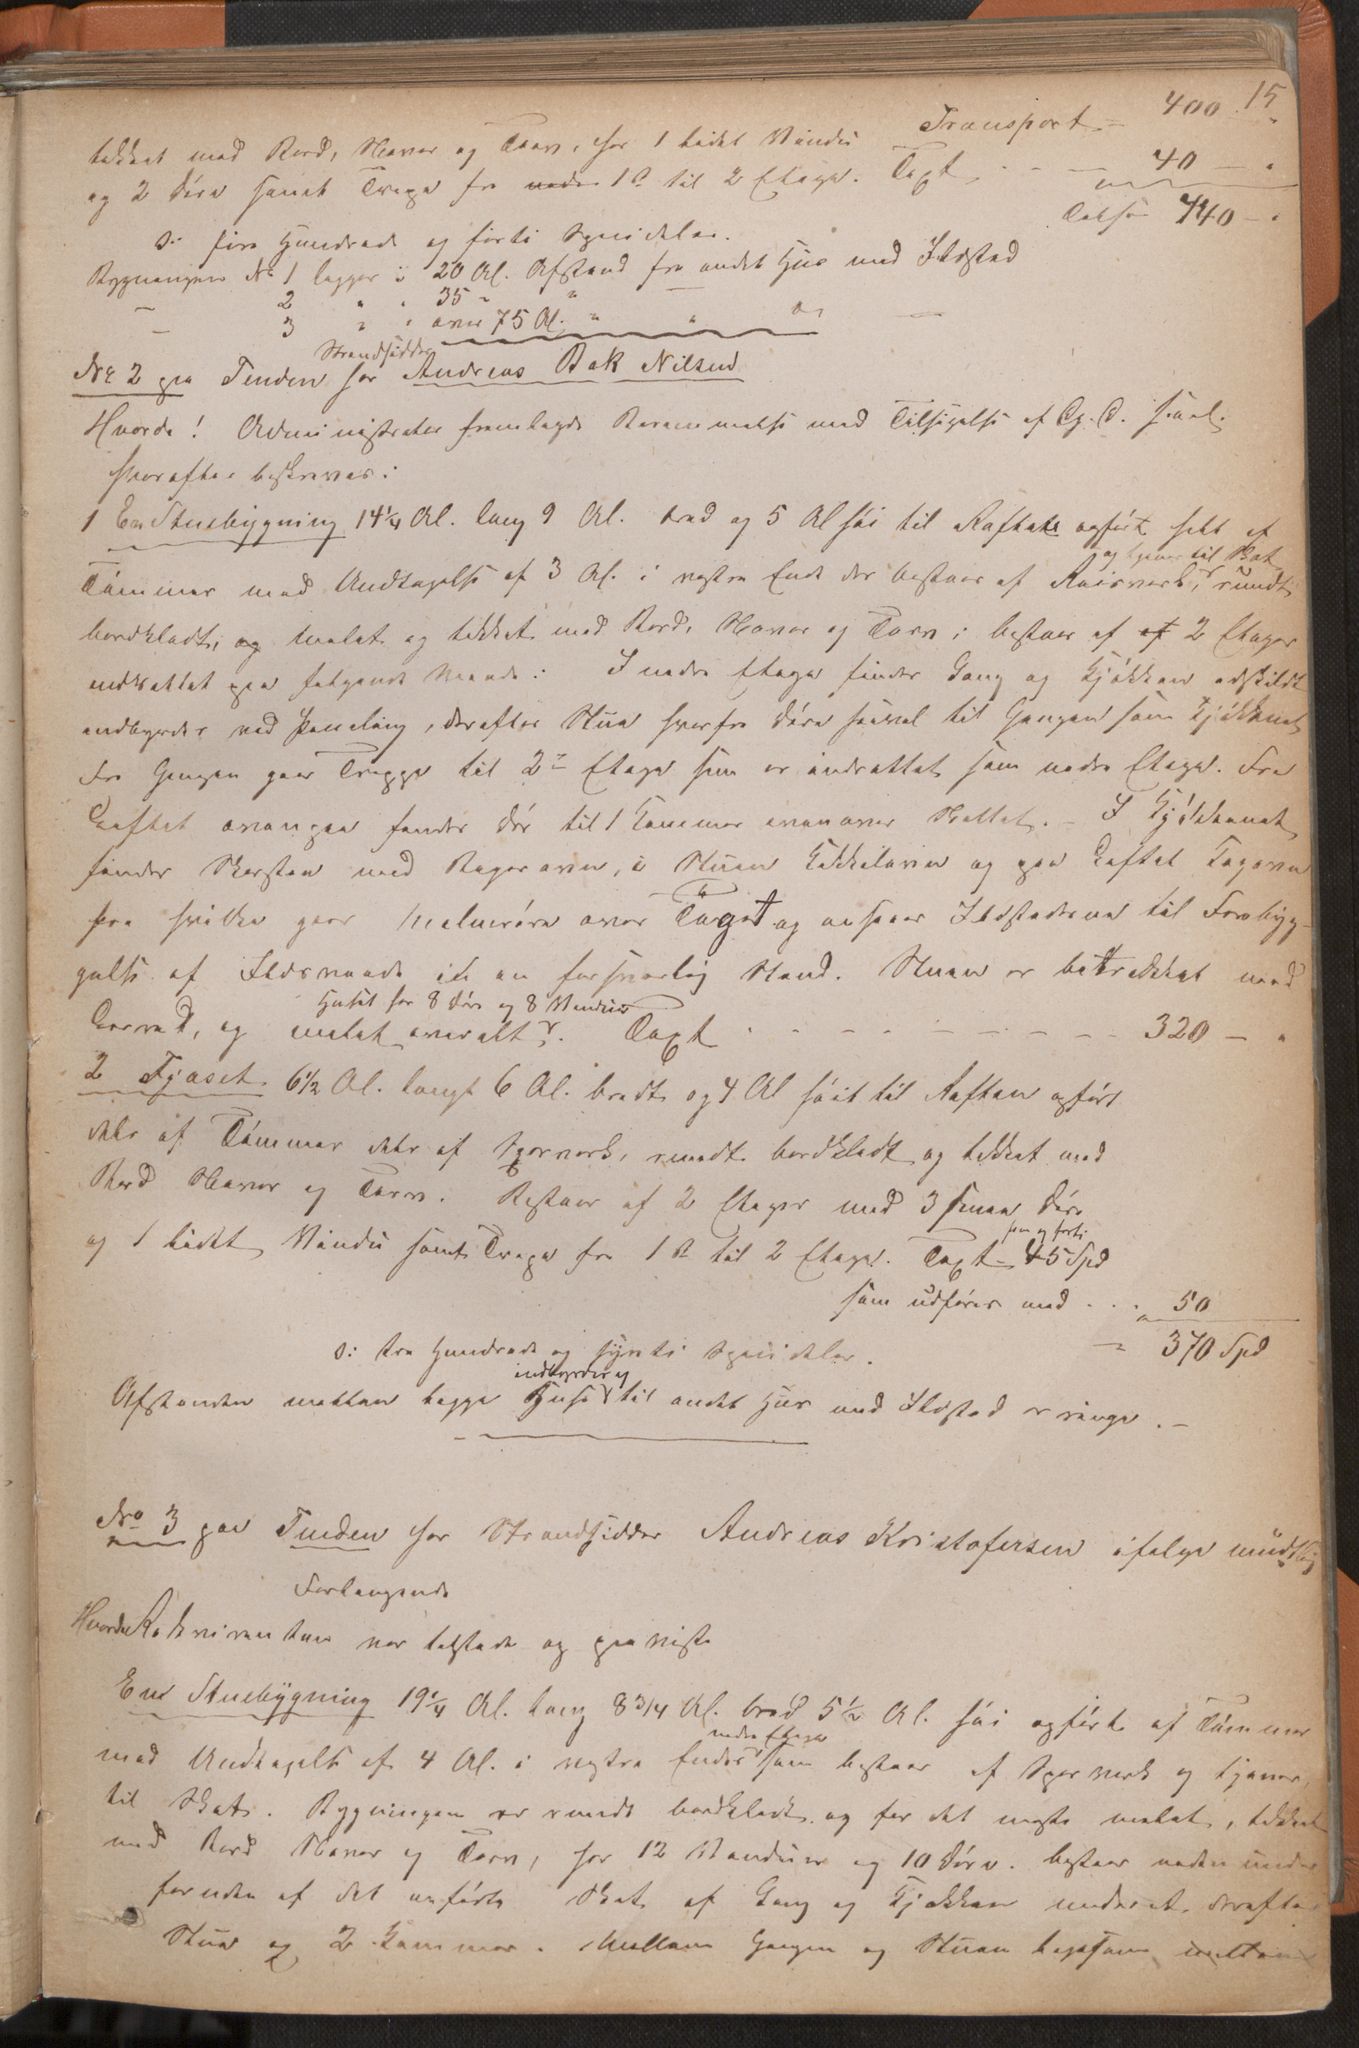 15
Transport 400 "
tækket med Bord, Næver og Torv, har 1 lidet Vindu
og 2 Döre samt Trape fra nedre 1ste til 2 Etage. Taxt - - 40 - "
Talsa 440 - "
s: fire Hundrede og förti Speciedaler.
Bygningen No 1 ligger i 20 Al. Afstand fra andet Hus med Ildsted
— 2 " " 35 " " —
— 3 " " over 75 Al. " " do —
No 2 paa Tinden for Strandsidder Andreas Bak Nilsen
Hvorda! Administrator fremlagde Berammelse med Tilsigelse af
hvorefter beskreves:
1 En Stuebygning 14 1/4 Al. lang 9 Al. bred og 5 Al höi til Raftet opfört helt af
Tömmer med Undtagelse af 3 Al. i vestre Ende der bestaar af Reisverk, og tjener til Skot, rundt
bordklædt, og malet og tækket med Bord, Næver og Torv; bestaar af af 2 Etager
indrettet paa fölgende Maade: I nedre Etage findes Gang og Kjökken adskildt
indbyrdes ved Paneling, derefter Stue hvorfra Döre saavel til Gangen som Kjökkenet
Fra Gangen gaar Trappe til 2den Etage som er indrettet som nedre Etage. Fra
Loftet ovenpaa findes Dör til 1 Kammer ovenover Skottet. - I Kjökkenet
findes Skorsten med Bagerovn, i Stuen Kakkelovn og paa Loftet Tagovn
fra hvilke gaar Malmrör over Taget og ansaaes Ildstederne til Forebyg-
gelse af Ildsvaade i en forsvarlig Stand. Stuen er betrækket med
Lerred, og malet overalt. Huset har 8 Döre og 8 Vinduer Taxt - - - - - - - 320 - "
2 Fjöset 6 1/2 Al. langt 6 Al. bredt og 4 Al höit til Raften opfört
dels af Tömmer dels af Sperverk, rundt bordklædt og tækket med
Bord Næver og Torv. Bestaar af 2 Etager med 3 smaa Döre
og 1 lidet Vindu samt Trape fra 1ste til 2 Etage. Taxt - 45 Spd fem og förti
som udföres med . . . 50
= 370 Spd
s: tre Hundrede og sytti Speciedaler.
Afstanden mellem begge Huse indbyrdes og til andet Hus med Ildsted er ringe. -
No 3 paa Tinden for Strandsidder Andreas Kristofersen ifölge mündtlig
Forlangende
Hvorda Rekvirenten var tilstede og paaviste
En Stuebygning 19 1/4 Al. lang 8 3/4 Al. bred 5 1/2 Al. höi opfört af Tömmer
med Undtagelse af 4 Al. i vestre Ende nedre Etage som bestaar af Sperverk og tjener
til Skot. Bygningen er rundt bordklædt og for det meste malet, tækket
med Bord Næver og Torv, har 12 Vinduer og 10 Döre. bestaar neden under
foruden af det anförte Skot af Gang og Kjökken underet, derefter
Stue og 2 Kammer. Mellem Gangen og Stuen ligesom mellem